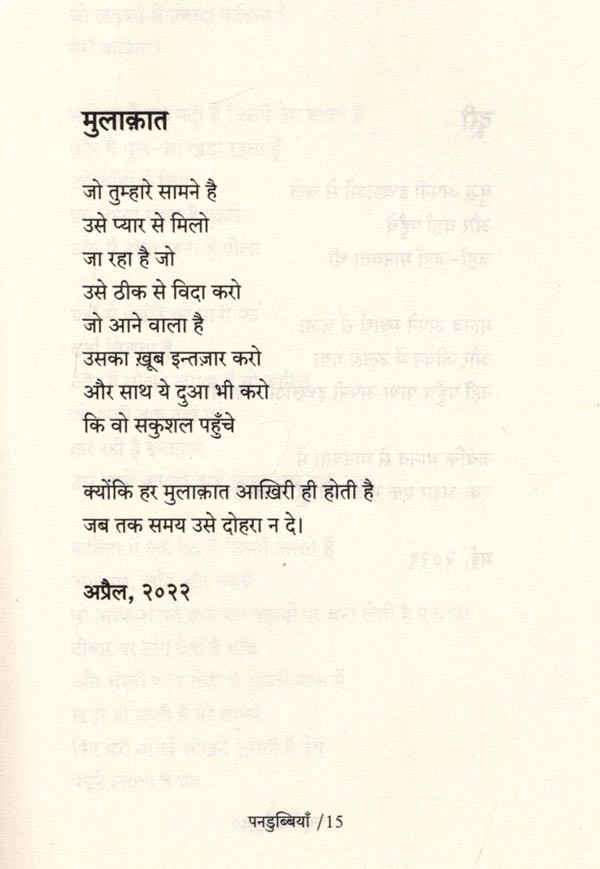 मुलाक़ात
जो तुम्हारे सामने है
उसे प्यार से मिलो
जा रहा है जो
उसे ठीक से विदा करो
जो आने वाला है
उसका ख़ूब इन्तज़ार करो
और साथ ये दुआ भी करो
कि वो सकुशल पहुँचे
क्योंकि हर मुलाक़ात आख़िरी ही होती है
जब तक समय उसे दोहरा न दे।
अप्रैल, २०२२
पनडुब्बियाँ /15